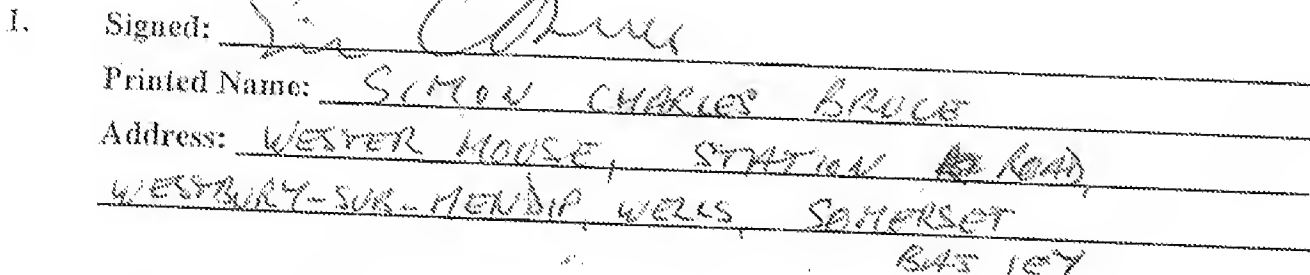 1. Signed:
Printed Name: SIMON CHARLES BRUCE
Address: WESTER HOUSE, STATION ROAD,
WESTBURY-SUB-MENDIP, WELLS, SOMERSET
BA5 1EY